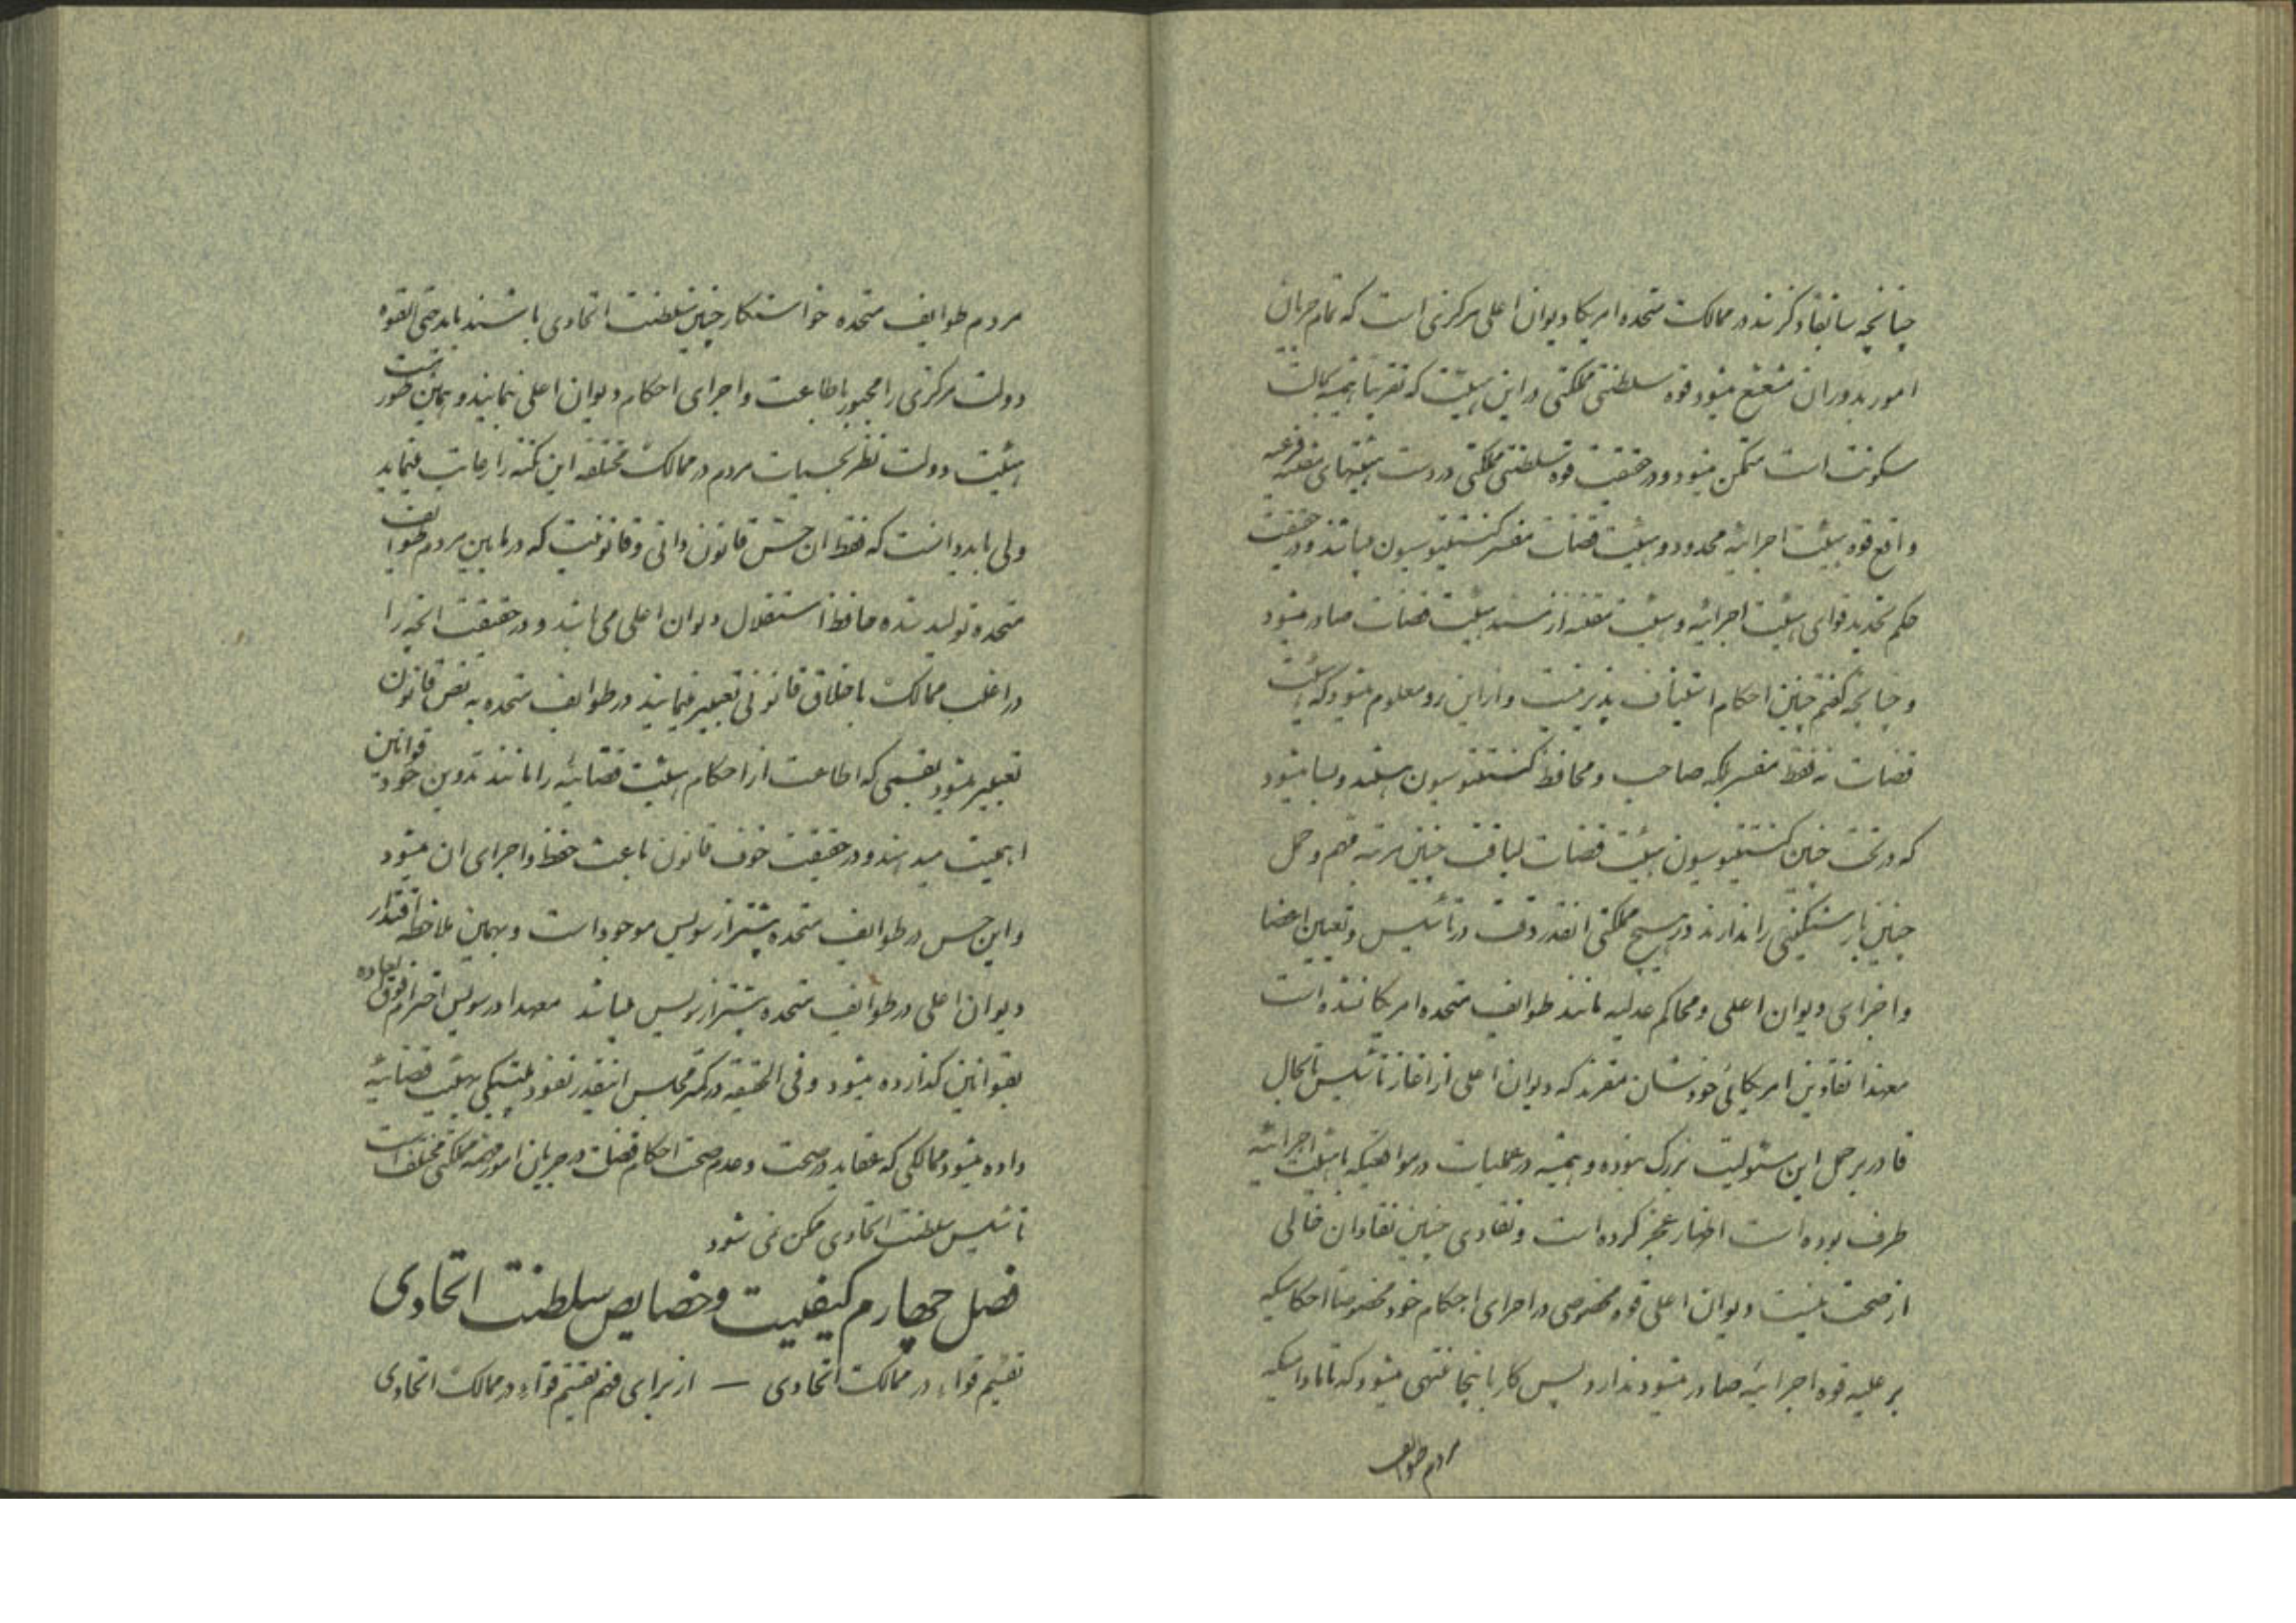 چنانچه سابقا ذکر شد در ممالک متحده امریکا دیوان اعلی مرکزی است که تمام جریان
امور بدوران متفرع میشود قوه سلطنتی مملکتی در این هیئت که تقریبا همیشه بحالت
سکونت است متمکن میشود و در حقیقت قوه سلطنتی مملکتی در دست هیئتهای متفرعه
واقع قوه هیئت اجرائیه محدود و هیئت قضات مفسر کنستیتوسیون میباشند و در حقیقت
حکم تحدید قوای هیئت اجرائیه و هیئت مقننه از مسند هیئت قضات صادر میشود
و چنانچه گفتم چنین احکام استیناف پذیر نیست و از این رو معلوم میشود که هیئت
قضات نه فقط مفسر بلکه صاحب و محافظ کنستیتوسیون هستند و بسا میشود
که در تحت چنین کنستیتوسیون هیئت قضات لیاقت چنین مرتبه مهم و حمل
چنین بار سنگینی را ندارند در هیچ مملکتی انقدر دقت در تأسیس و تعیین اعضا
و اجزای دیوان اعلی و محاکم عدلیه مانند طوایف متحده امریکا نشده است
معهذا نقادین امریکائی خودشان مقرند که دیوان اعلی از آغاز تأسیس تا بحال
قادر بر حمل این مسئولیت بزرک نبوده و همیشه در عملیات در مواقعیکه با هیئت اجرائیه
طرف بوده است اظهار عجز کرده است و نقادی چنین نقادان خالی
از صحت نیست دیوان اعلی قوه مخصوصی در اجرای احکام خود مخصوصا احکامیکه
بر علیه قوه اجرائیه صادر میشود ندارد پس کار باینجا منتهی میشود که تا مادامیکه
مردم طوایف
مردم طوایف متحده خواستکار چنین سلطنت اتحادی باشند باید حتی القوه
دولت مرکزی را مجبور باطاعت و اجرای احکام دیوان اعلی نمایند و همین طور است
هیئت دولت نظر بحسیات مردم در ممالک مختلفه این نکته را رعایت مینماید
ولی باید دانست که فقط ان حس قانون دانی و قانونیت که در مابین مردم طوایف
متحده تولید شده حافظ استقلال دیوان اعلی می باشد و در حقیقت انچه را
در اغلب ممالک باخلاق قانونی تعبیر مینمایند در طوایف متحده به نفس قانون
تعبیر میشود بقسمی که اطاعت از احکام هیئت قضائیه را مانند تدوین قوانین خود
اهمیت میدهند و در حقیقت خوف قانون باعث حفظ و اجرای ان میشود
و این حس در طوایف متحده بیشتر از سویس موجود است و بهمین ملاحظه اقتدار
دیوان اعلی در طوایف متحده بیشتر از سویس میباشد معهذا در سویس احترام فوق العاده
بقوانین گذارده میشود و فی الحقیقه در کمتر مجلس اینقدر نفوذ پلتیکی بهیئت قضائیه
داده میشود ممالکی که عقاید در صحت و عدم صحت احکام قضات در جریان امور مهمه مملکتی مختلف است
تأسیس سلطنت اتحادی ممکن نمی شود
فصل چهارم کیفیت و خصایص سلطنت اتحادی
تقسیم قواء در ممالک اتحادی — از برای فهم تقسیم قواء در ممالک اتحادی